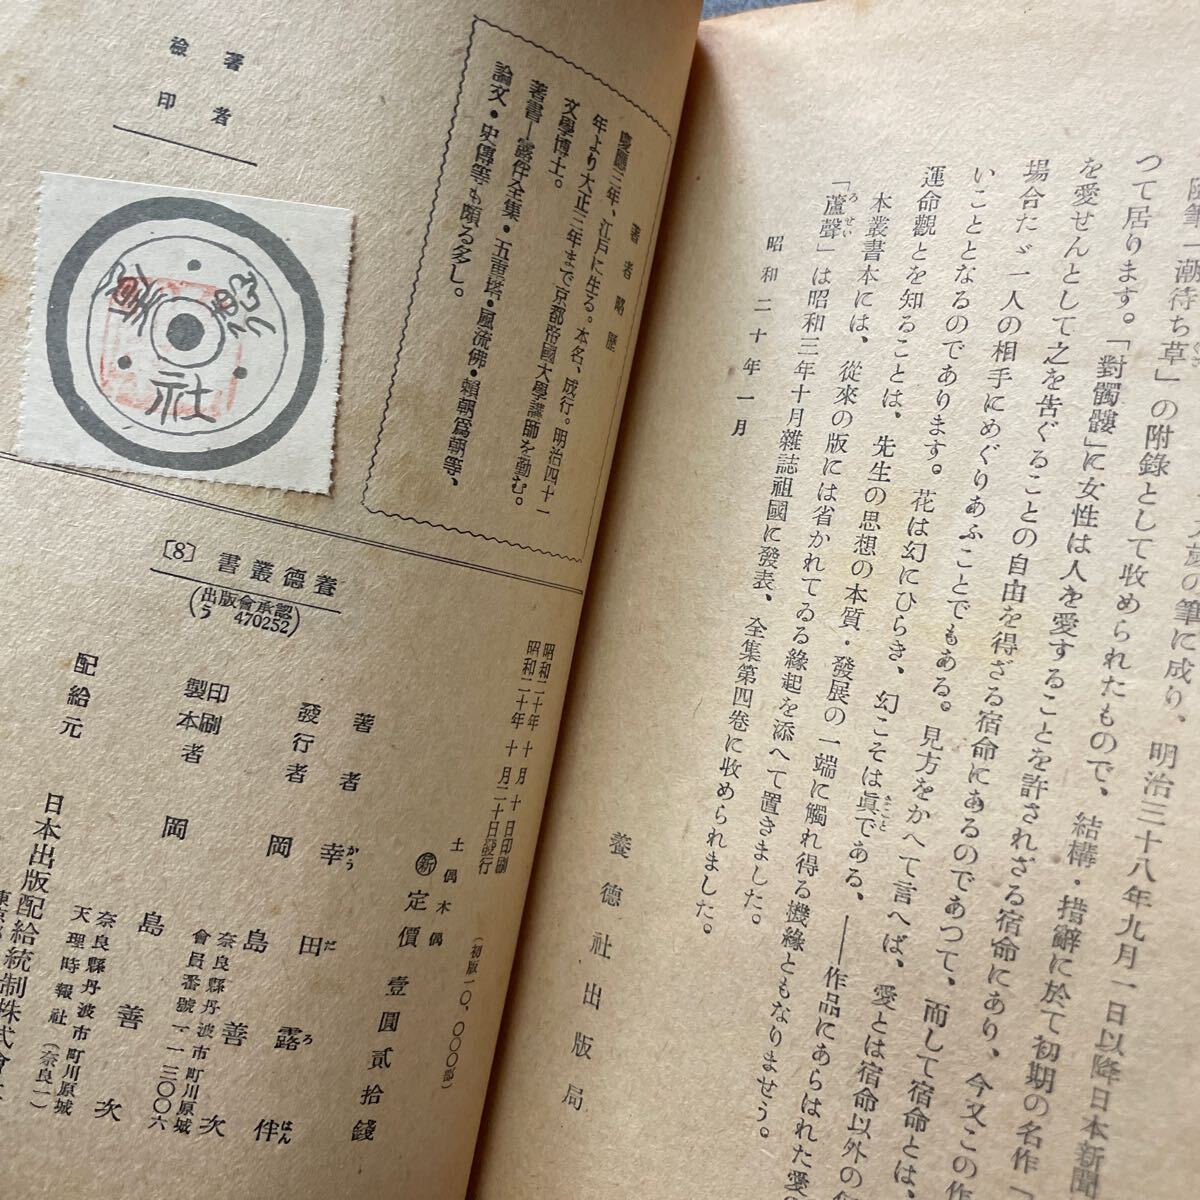 隨筆「潮待ち草」の附錄として收められたもので、結構・措辭に於て初期の名作「
つて居ります。「對髑髏」に女性は人を愛することを許されざる宿命にあり、今又この作
を愛せんとして之を吿ぐることの自由を得ざる宿命にあるのであつて、而して宿命とは、
場合たゞ一人の相手にめぐりあふことでもある。見方をかへて言へば、愛とは宿命以外の
いこととなるのであります。花は幻にひらき、幻こそは眞である、――作品にあらはれた愛の
運命觀とを知ることは、先生の思想の本質・發展の一端に觸れ得る機緣ともなりませう。
本叢書本には、從來の版には省かれてゐる緣起を添へて置きました。
「蘆聲」は昭和三年十月雜誌祖國に發表、全集第四卷に收められました。
昭和二十年一月
養德社出版局
著者略歷
慶應三年、江戶に生る。本名、成行。明治四十一
年より大正三年まで京都帝國大學講師を勤む。
文學博士。
著書―露伴全集・五重塔・風流佛・賴朝爲朝等、
論文・史傳等も頗る多し。
著者
檢印
社
養德叢書〔8〕
(出版會承認
う 470252)
昭和二十年十月十日印刷
昭和二十年十月二十日發行
土偶木偶
(初版一〇、〇〇〇部)
新 定價壹圓貳拾錢
著者 幸田露伴
かうだろはん
發行者 岡島善次
奈良縣丹波市町川原城
會員番號一一三〇〇六
印刷
製本者 岡島善次
奈良縣丹波市町川原城
天理時報社(奈良一)
配給元 日本出版配給統制株式會